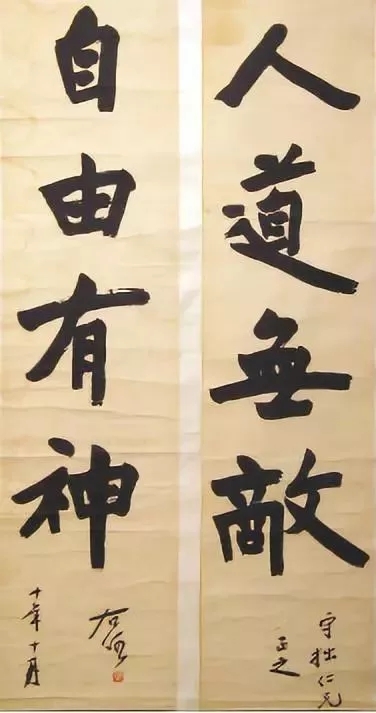 人道無敵
守拙仁兄
正之
自由有神
右任
十年十月